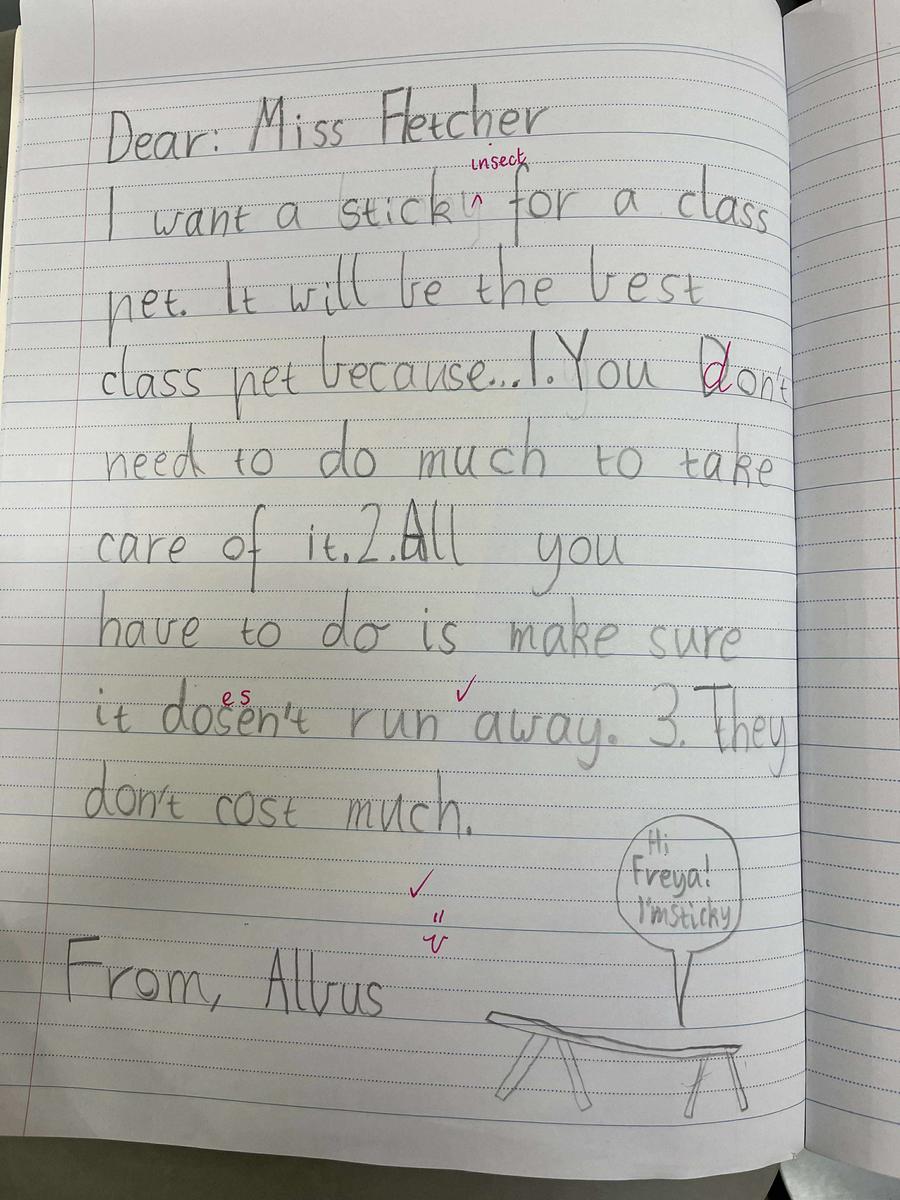 Dear: Miss Fletcher
insect
I want a stick ^ for a class
pet. It will be the best
class pet because...1. You Don't
need to do much to take
care of it. 2. All you
have to do is make sure
es
it dosen't run away. 3. They
don't cost much.
Hi
Freya!
I'm Sticky
From, Albus